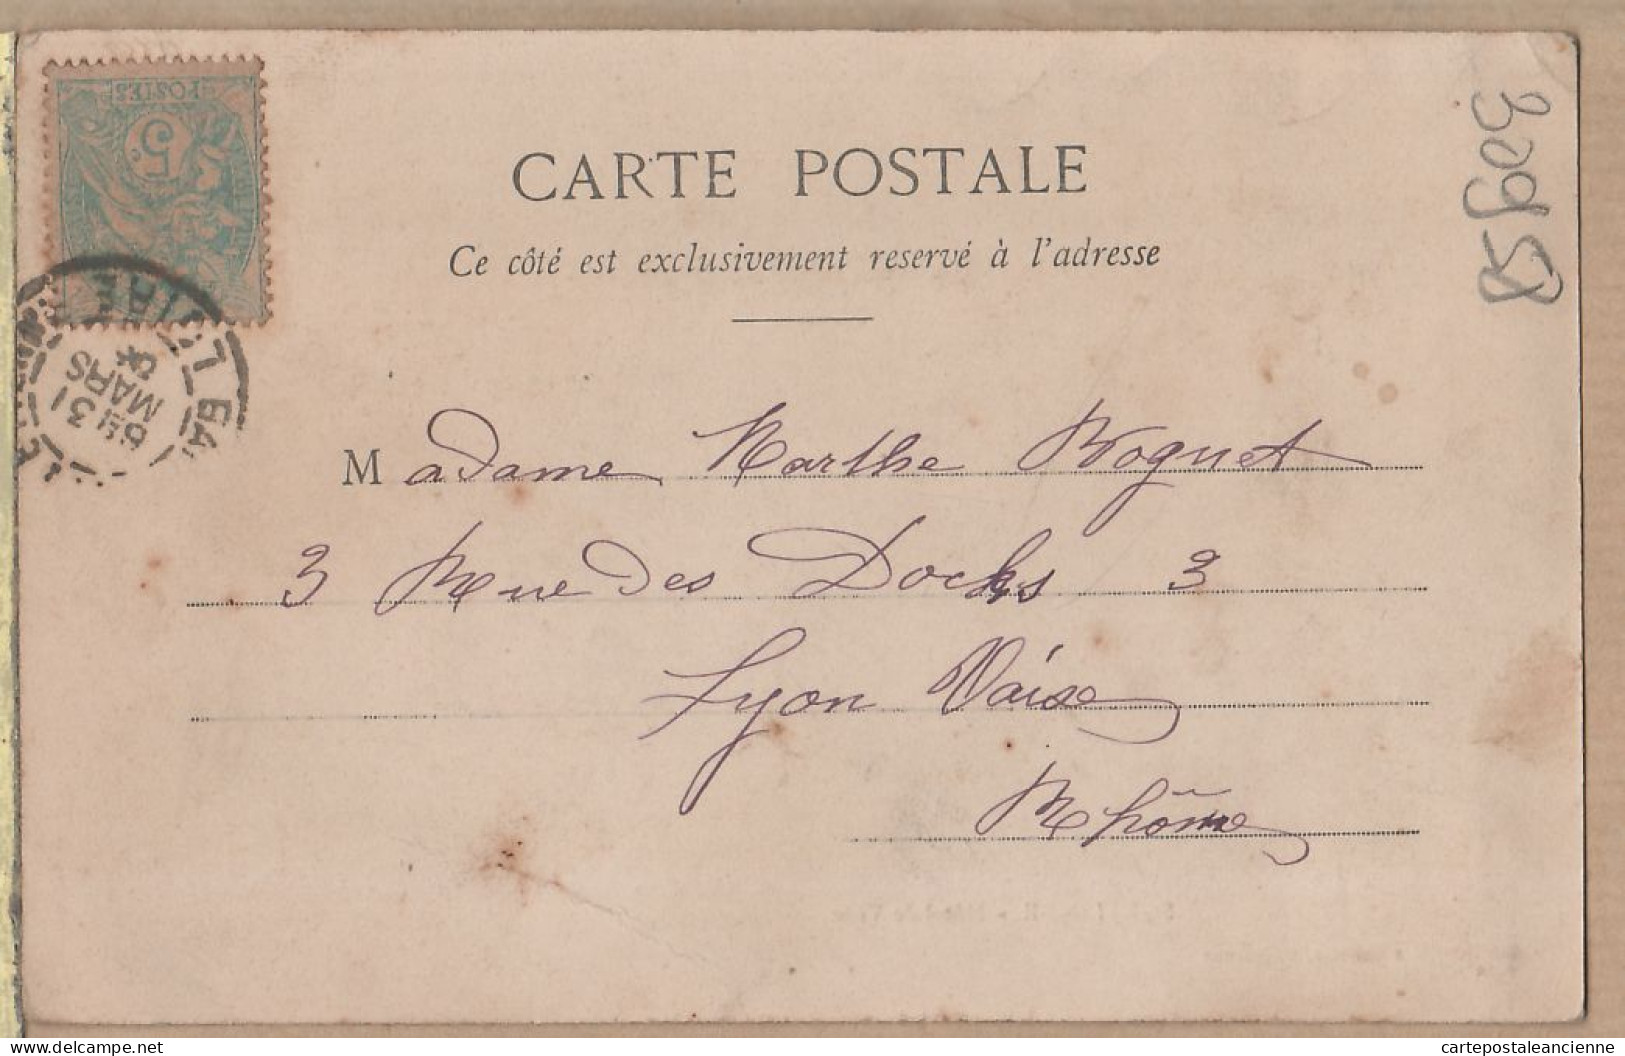 POSTES
5
CARTE POSTALE
Ce côté est exclusivement reservé à l'adresse
31
MARS
Madame Marthe Roguet
3 Rue des Docks 3
Lyon Vaise
Rhône
delcampe.net
cartepostaleancienne